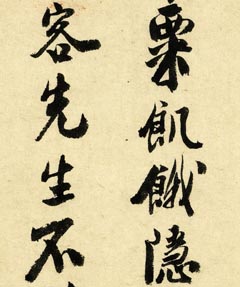 粟飢餓隱
客先生不